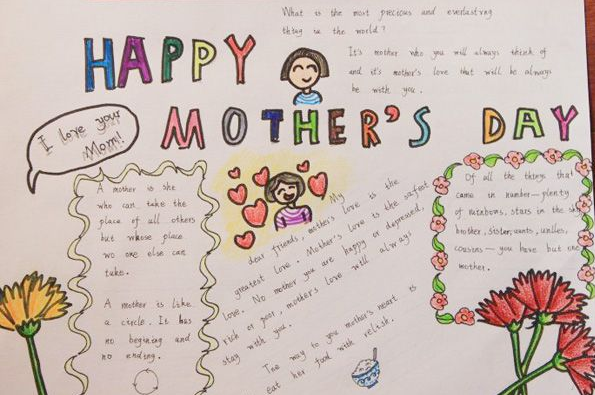 HAPPY
MOTHER'S DAY
What is the most precious and everlasting
thing in the world?
It's mother who you will always think of
and it's mother's love that will be always
be with you.
I love your
Mom!
A mother is she
who can take the
place of all others
but whose place
wo one else can
take.
A mother is like
a circle. It has
no begining and
no ending.
My
dear friends, mother's love is the
greatest love. Mother's love is the safest
love. No mother you are happy or depressed,
rich or poor, mother's love will always
stay with you.
The way to you mother's heart is
eat her fund with relish.
Of all the things that
came in number—plenty
of rainbows, stars in the sky
brother, sister, aunts, unlles,
cousins—you have but one
mother.